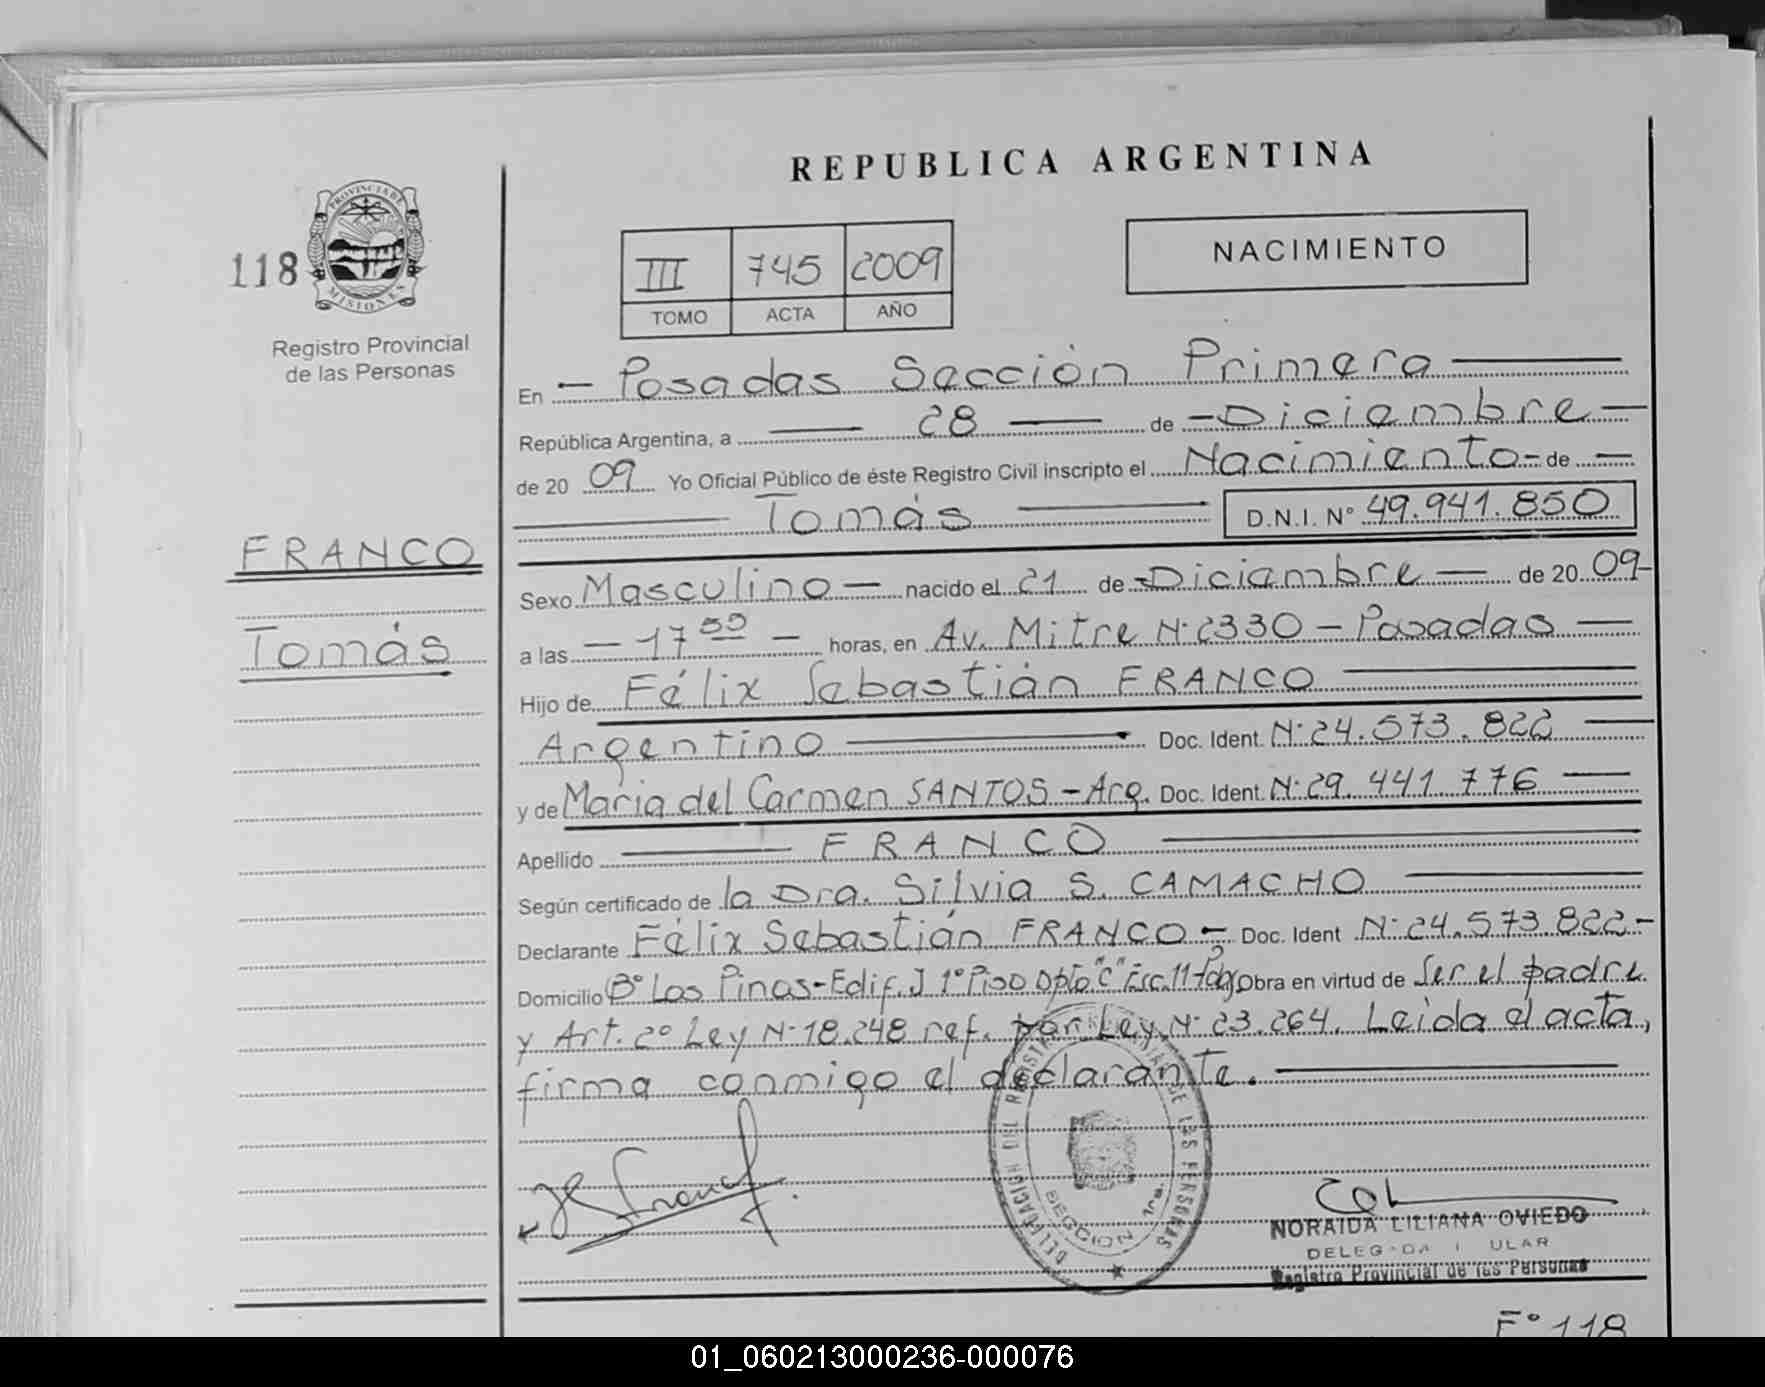 REPUBLICA ARGENTINA
118
PROVINCIA DE
MISIONES
Registro Provincial
de las Personas
III 745 2009
TOMO ACTA AÑO
NACIMIENTO
En - Posadas Sección Primera
República Argentina, a 28 de - Diciembre -
de 20 09 Yo Oficial Público de éste Registro Civil inscripto el Nacimiento - de -
Tomás D.N.I. N° 49.941.850
FRANCO
Tomás
Sexo Masculino - nacido el 21 de - Diciembre - de 20 09-
a las - 17 - horas, en Av. Mitre N° 2330 - Posadas -
Hijo de Félix Sebastián FRANCO
Argentino Doc. Ident. N° 24.573.822
y de Maria del Carmen SANTOS - Arg. Doc. Ident. N° 29.441.776
Apellido FRANCO
Según certificado de la Dra. Silvia S. CAMACHO
Declarante Félix Sebastián FRANCO - Doc. Ident N° 24.573.822-
Domicilio B° Los Pinos-Edif. J 1° Piso Dpto "C" Esc. 11 Obra en virtud de Ser el padre
y Art. 2° Ley N° 18.248 ref. por Ley N° 23.264. Leida el acta,
firma conmigo el declarante.
DELEGACION DEL REGISTRO PROVINCIAL DE LAS PERSONAS
SECCION 1ra.
NORAIDA LILIANA OVIEDO
Registro Provincial de las Personas
F° 118
01_060213000236-000076